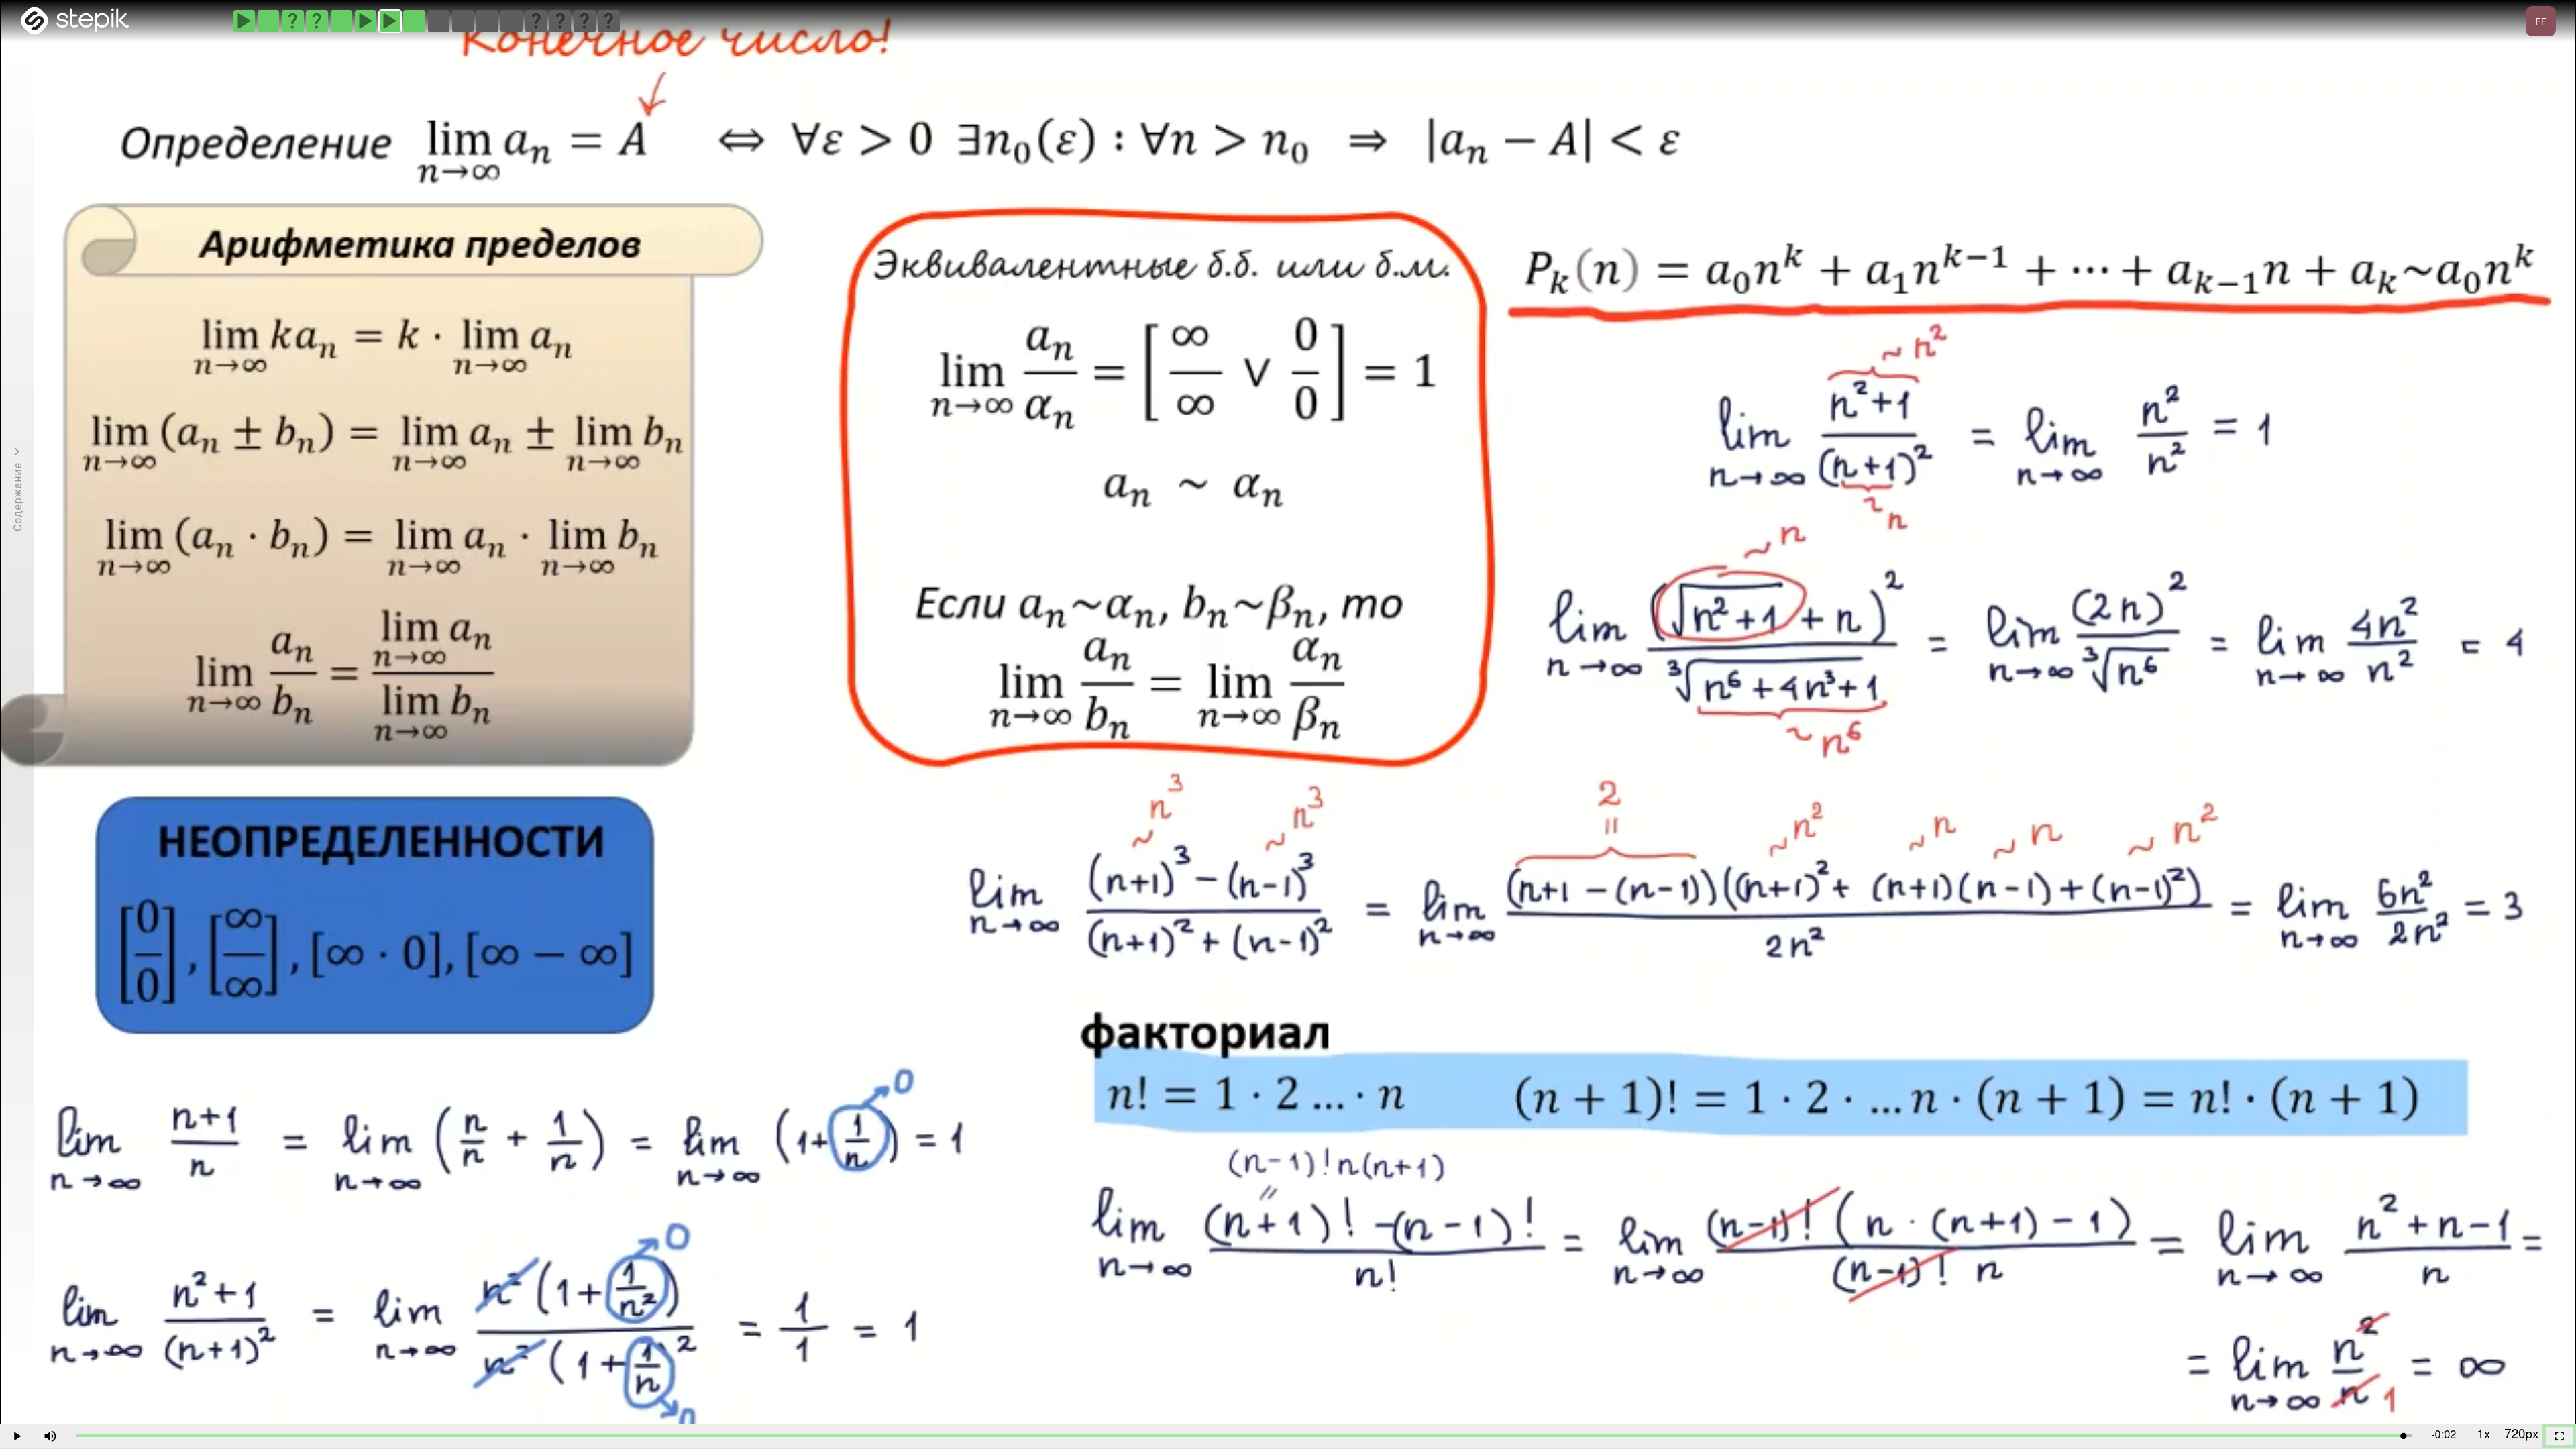 stepik
FF
Конечное число!
Определение lim_{n→∞} a_n = A ⇔ ∀ε > 0 ∃n_0(ε) : ∀n > n_0 ⇒ |a_n − A| < ε
Содержание
Арифметика пределов
lim_{n→∞} ka_n = k · lim_{n→∞} a_n
lim_{n→∞} (a_n ± b_n) = lim_{n→∞} a_n ± lim_{n→∞} b_n
lim_{n→∞} (a_n · b_n) = lim_{n→∞} a_n · lim_{n→∞} b_n
lim_{n→∞} a_n/b_n = lim_{n→∞} a_n / lim_{n→∞} b_n
Эквивалентные б.б. или б.м.
lim_{n→∞} a_n/α_n = [∞/∞ ∨ 0/0] = 1
a_n ~ α_n
Если a_n~α_n, b_n~β_n, то
lim_{n→∞} a_n/b_n = lim_{n→∞} α_n/β_n
P_k(n) = a_0n^k + a_1n^{k−1} + ⋯ + a_{k−1}n + a_k~a_0n^k
~ n²
lim_{n→∞} (n²+1)/(n+1)² = lim_{n→∞} n²/n² = 1
~ n
~ n
lim_{n→∞} (√(n²+1) + n)² / ³√(n⁶+4n³+1) = lim_{n→∞} (2n)² / ³√(n⁶) = lim_{n→∞} 4n²/n² = 4
~ n⁶
НЕОПРЕДЕЛЕННОСТИ
[0/0], [∞/∞], [∞ · 0], [∞ − ∞]
~ n³ ~ n³ 2 = ~ n² ~ n ~ n ~ n²
lim_{n→∞} ((n+1)³ − (n−1)³)/((n+1)² + (n−1)²) = lim_{n→∞} (n+1 − (n−1))((n+1)² + (n+1)(n−1) + (n−1)²) / 2n² = lim_{n→∞} 6n²/2n² = 3
факториал
n! = 1 · 2 … · n (n + 1)! = 1 · 2 · … n · (n + 1) = n! · (n + 1)
lim_{n→∞} (n+1)/n = lim_{n→∞} (n/n + 1/n) = lim_{n→∞} (1 + 1/n) = 1
0
lim_{n→∞} (n²+1)/(n+1)² = lim_{n→∞} n²(1 + 1/n²) / n²(1 + 1/n)² = 1/1 = 1
0
0
(n−1)! n(n+1)
=
lim_{n→∞} ((n+1)! −(n−1)!)/n! = lim_{n→∞} (n−1)! (n · (n+1) − 1) / (n−1)! n = lim_{n→∞} (n² + n − 1)/n =
= lim_{n→∞} n²/n 1 = ∞
-0:02 1x 720px